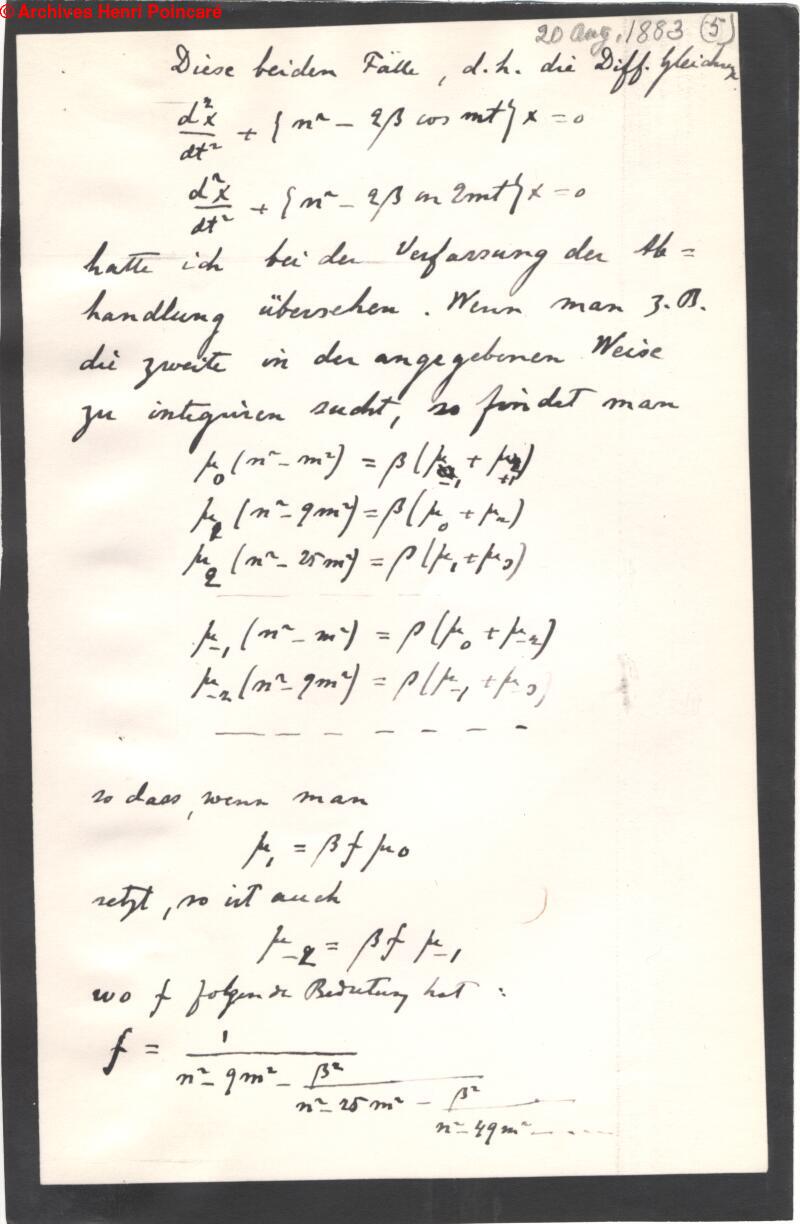 © Archives Henri Poincaré
20 Aug. 1883 (5)
Diese beiden Fälle, d.h. die Diff. Gleichungen
d²x/dt² + {n² − 2β cos mt} x = 0
d²x/dt² + {n² − 2β cos 2mt} x = 0
hatte ich bei der Verfassung der Ab=
handlung übersehen. Wenn man z.B.
die zweite in der angegebenen Weise
zu integriren sucht, so findet man
μ₀ (n² − m²) = β(μ₋₁ + μ₊₁)
μ₁ (n² − 9m²) = β(μ₀ + μ₂)
μ₂ (n² − 25m²) = β(μ₁ + μ₃)
μ₋₁ (n² − m²) = β(μ₀ + μ₋₂)
μ₋₂ (n² − 9m²) = β(μ₋₁ + μ₋₃)
so dass, wenn man
μ₁ = β f μ₀
setzt, so ist auch
μ₋₂ = β f μ₋₁
wo f folgende Bedeutung hat :
f = 1/(n² − 9m² − β²/(n² − 25m² − β²/(n² − 49m² − ....